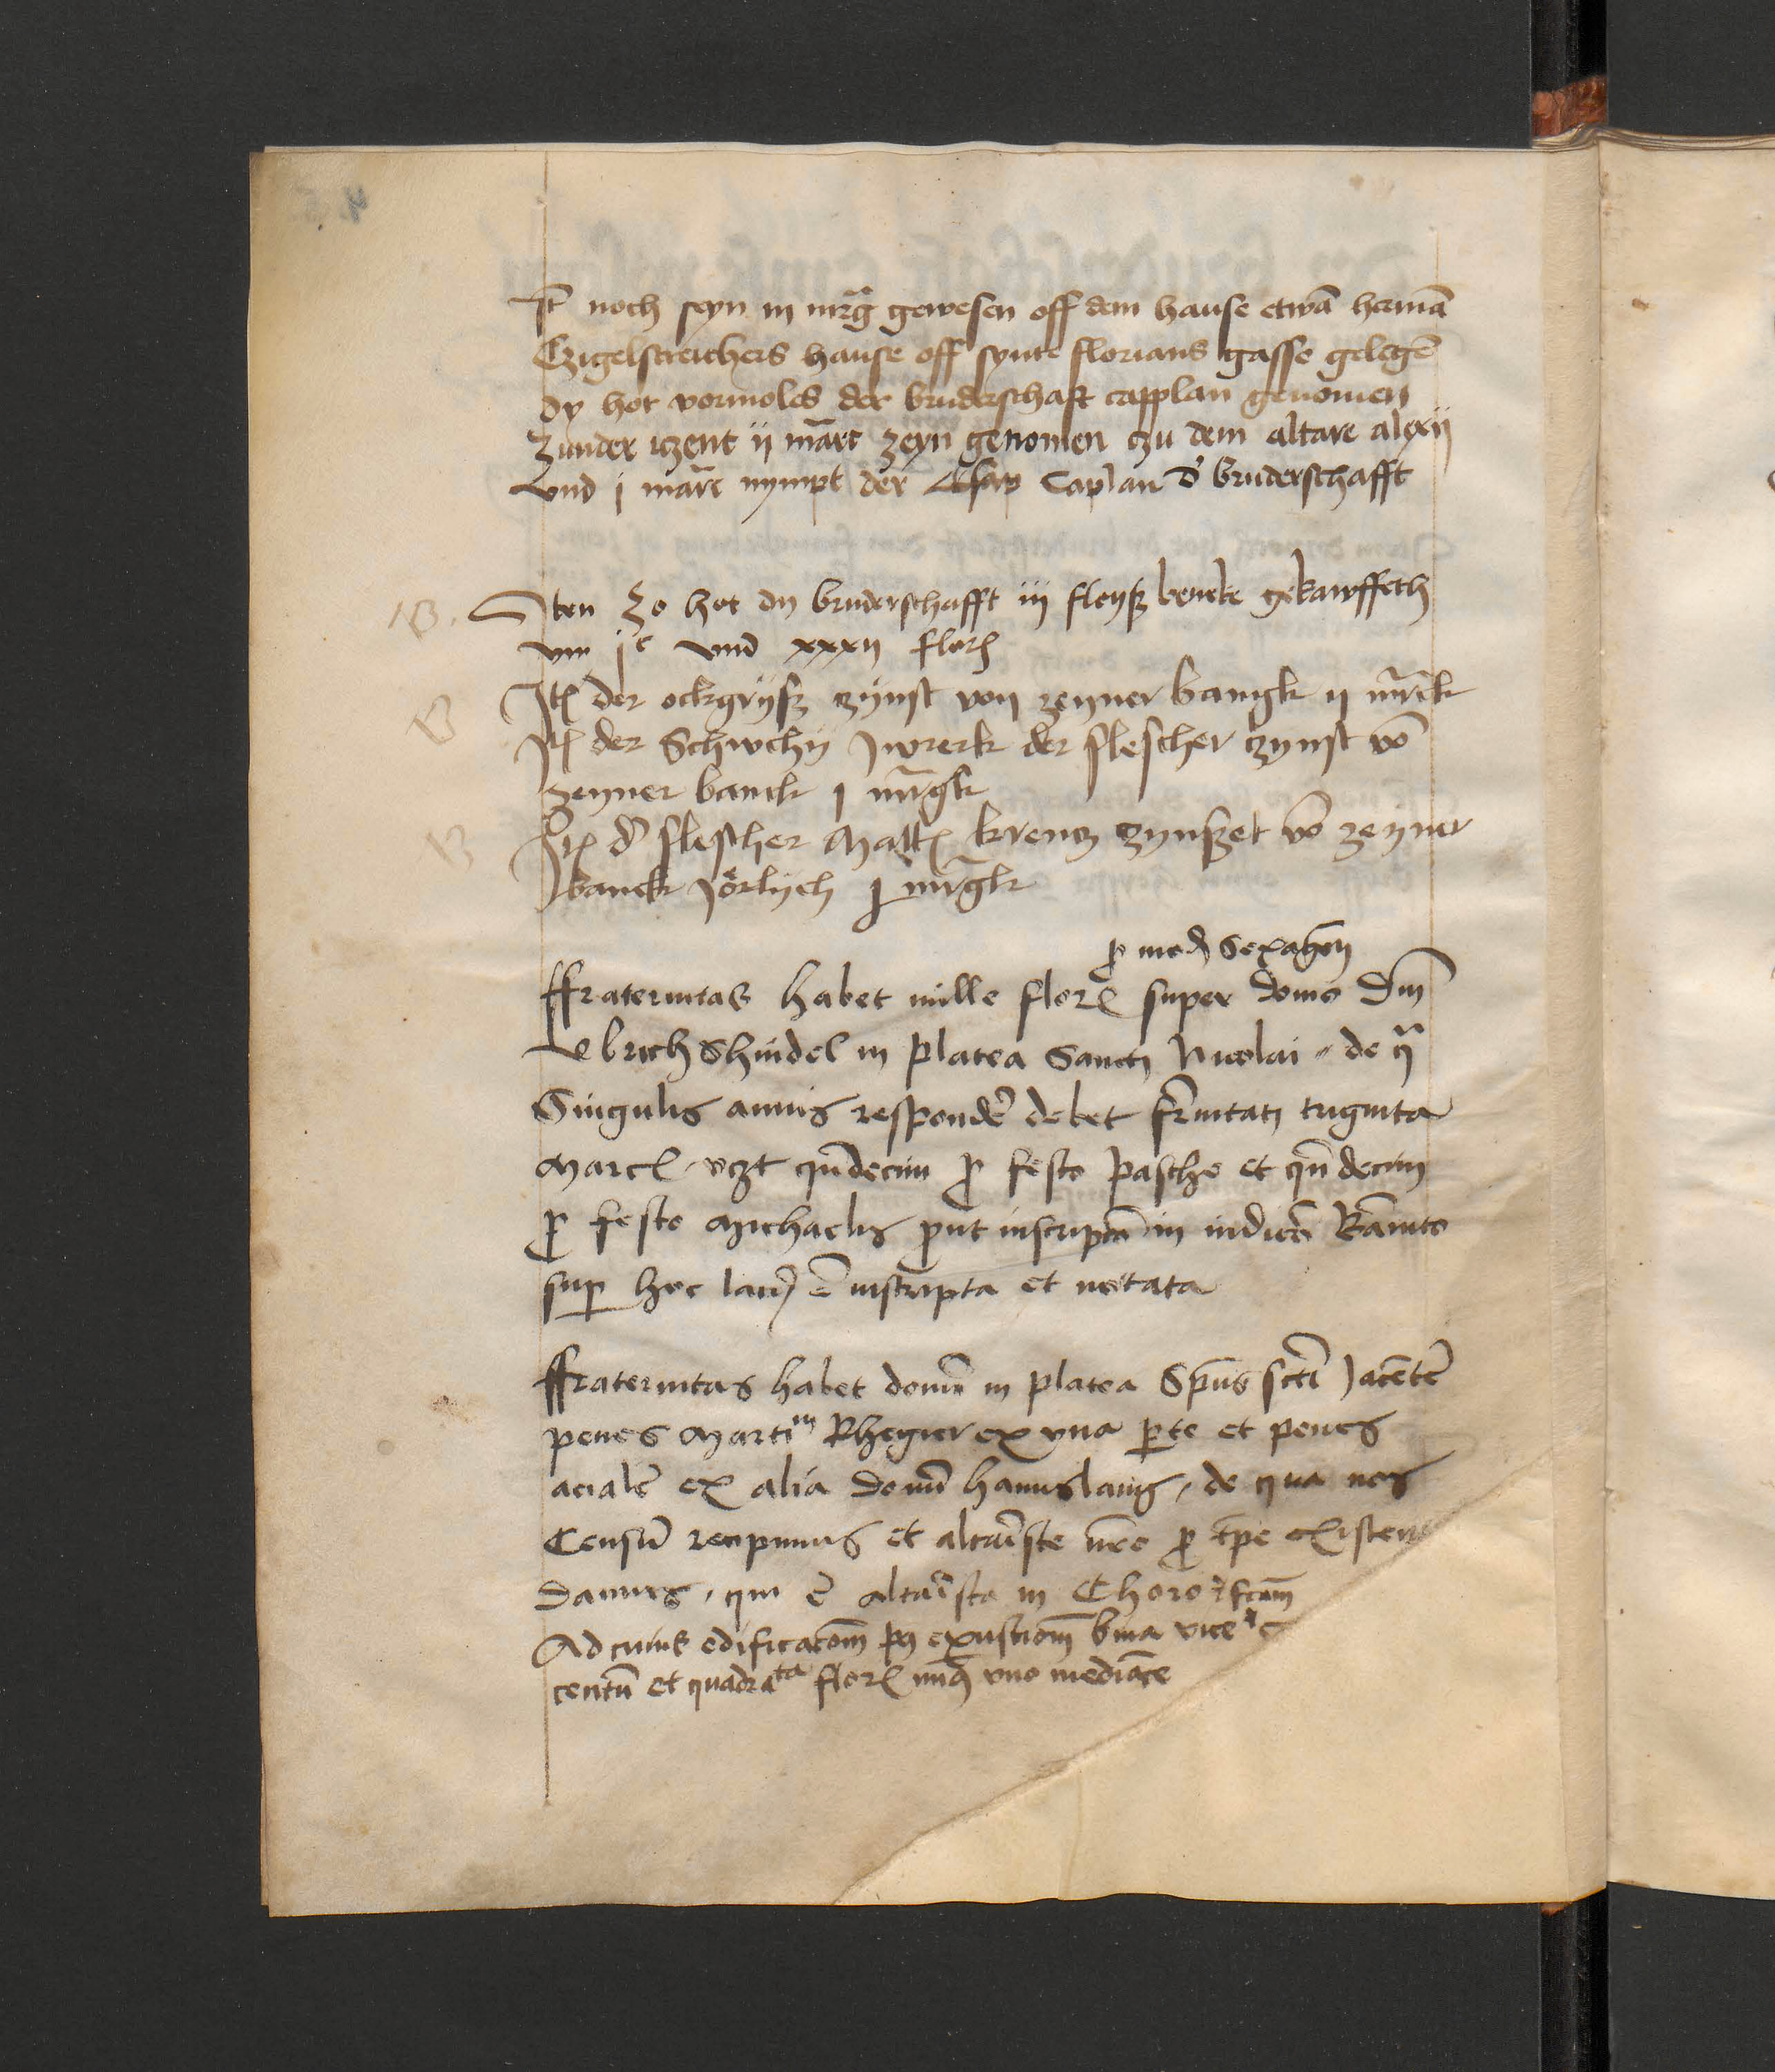 It noch seyn iii mrg gewesen off dem hause etwā hermā
Czigelstreichers hause off synte florians gasse gelegē
dy hot vormoles der bruderschaft capplan genomen
Zunder iczent ii marc zeyn genomen czu dem altare alexii
vnd j marc nympt der Caplan d' bruderschafft
Item Zo hot dy bruderschafft iij fleysz bencke gekawffeth
vm jc vnd xxxij flor
Jt der ockgrysz czynst von zeyner bangk ij mrck
Jt der Schwchy der flescher czynst vō
zeyner banck j mrgk
Jt d' flescher Matt krencz czynszet vō zeyner
banck Jorlych j mrgk
p med Sexagen
ffraternitas habet mille flor super domo Dni
Vlrich Shindel in platea Sancti Nicolai de q
Singulis annis respondē debet frnitati triginta
Marc vczt qndecim p festo pasche et qndecim
p festo Michaelis put inscripcō in iudicō Bānito
sup hoc laci ē inscripta et notata
ffraternitas habet domū in platea Spūs scti Jacētē
penes Martim Rhegier ex vna pte et penes
acialē ex alia domū hannus lang, de qua nos
Censū recipimus et altariste nrō p tpe existen
damus, qui ē altarista in Choro
Ad cuius edificacōm p exustiom bina vice
centū et quadrata flor unq vno mediāte